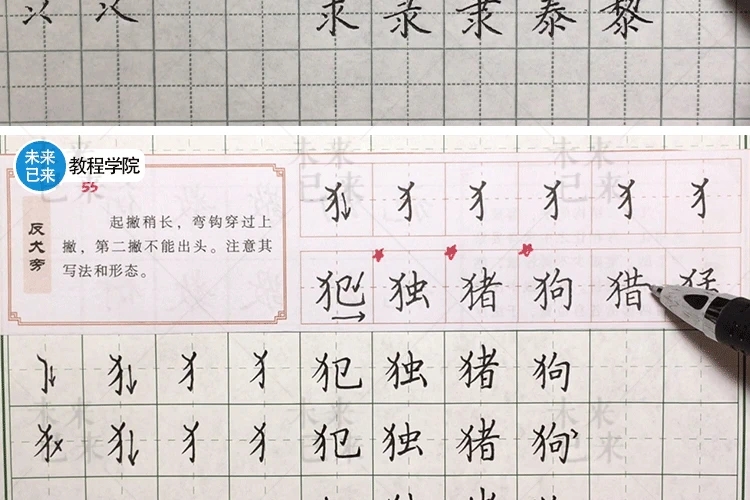 求 录 隶 泰 黎
未来
已来
教程学院
55
反犬旁
起撇稍长，弯钩穿过上
撇，第二撇不能出头。注意其
写法和形态。
犭 犭 犭 犭 犭 犭
犯 独 猪 狗 猎 猛
犭 犭 犭 犯 独 猪 狗
犭 犭 犭 犯 独 猪 狗
未来
已来